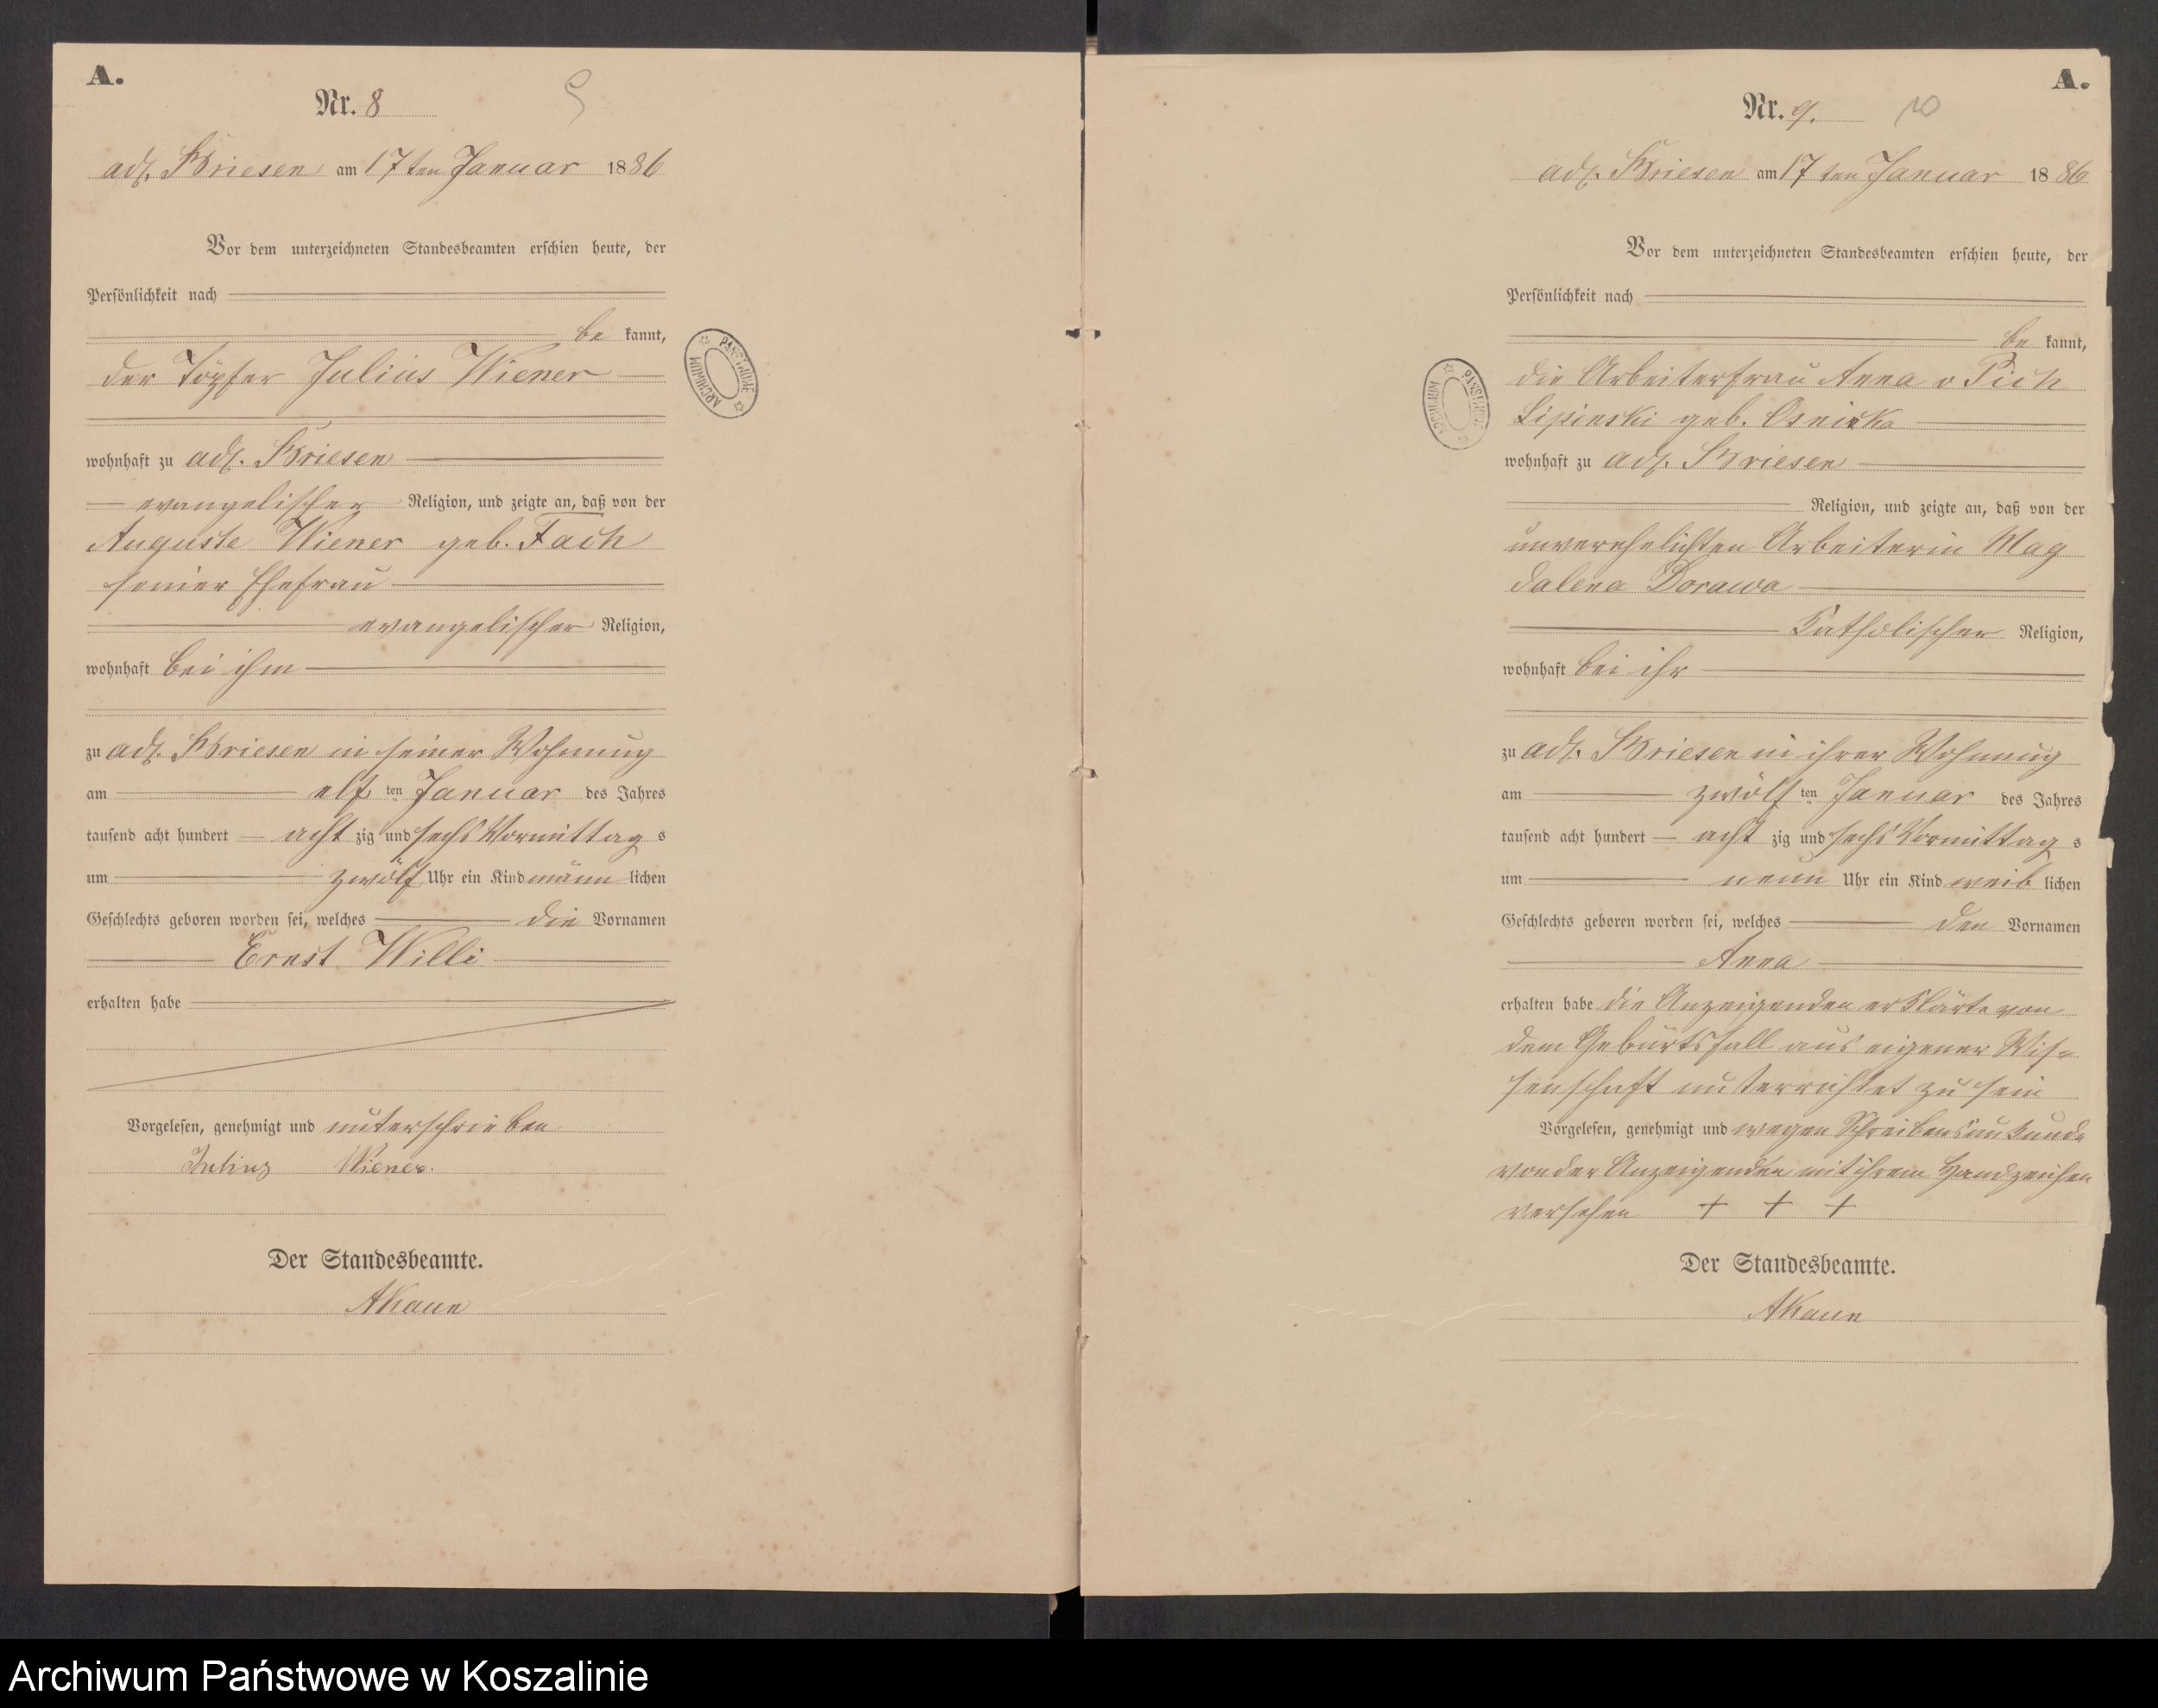 A.
Nr. 8
9
adl. Briesen am 17ten Januar 1886
Vor dem unterzeichneten Standesbeamten erschien heute, der
Persönlichkeit nach
be kannt,
der Töpfer Julius Wiener
wohnhaft zu adl. Briesen
evangelischer Religion, und zeigte an, daß von der
Auguste Wiener geb. Fach
seiner Ehefrau
evangelischer Religion,
wohnhaft bei ihm
zu adl. Briesen in seiner Wohnung
am elf ten Januar des Jahres
tausend acht hundert acht zig und sechs Vormittag s
um zwölf Uhr ein Kind männ lichen
Geschlechts geboren worden sei, welches die Vornamen
Ernst Willi
erhalten habe
Vorgelesen, genehmigt und unterschrieben
Julius Wiener.
Der Standesbeamte.
AKaun
ARCHIWUM PAŃSTWOWE
A.
Nr. 9.
10
adl. Briesen am 17ten Januar 1886
Vor dem unterzeichneten Standesbeamten erschien heute, der
Persönlichkeit nach
be kannt,
die Arbeiterfrau Anna v Pich
Lipinski geb.
wohnhaft zu adl. Briesen
Religion, und zeigte an, daß von der
unverehelichten Arbeiterin Mag
dalena Dorawa
Katholischer Religion,
wohnhaft bei ihr
zu adl. Briesen in ihrer Wohnung
am zwölf ten Januar des Jahres
tausend acht hundert acht zig und sechs Vormittag s
um neun Uhr ein Kind weib lichen
Geschlechts geboren worden sei, welches den Vornamen
Anna
erhalten habe die Anzeigenden erklärte von
dem Geburtsfall aus eigener Wis=
senschaft unterrichtet zu sein
Vorgelesen, genehmigt und wegen Schreibensunkunde
von der Anzeigenden mit ihrem Handzeichen
versehen + + +
Der Standesbeamte.
AKaun
ARCHIWUM PAŃSTWOWE
Archiwum Państwowe w Koszalinie